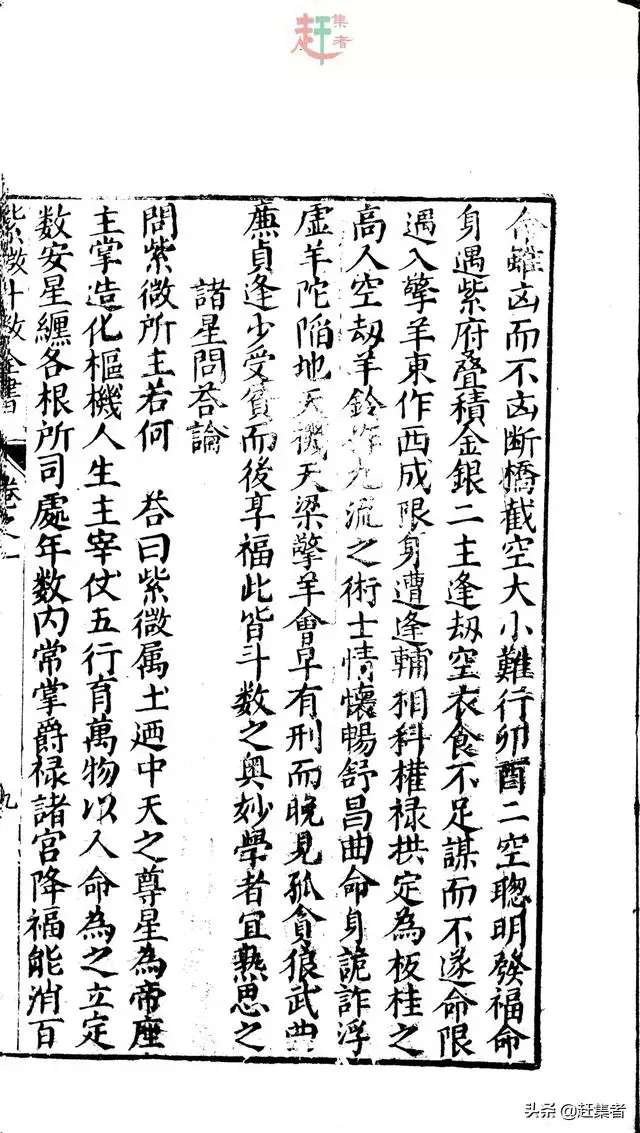 赶集者
命雖凶而不凶断橋截空大小難行卯酉二空聰明發福命
身遇紫府叠積金銀二主逢劫空衣食不足謀而不遂命限
遇入擎羊東作西成限身遭逢輔相科權禄拱定為板桂之
高人空劫羊鈴作九流之術士情懷暢舒昌曲命身詭詐浮
虛羊陀陷地天機天梁擎羊會早有刑而晚見孤貪狼武曲
廉貞逢少受貧而後享福此皆斗数之奥妙學者宜熟思之
諸星問荅論
問紫微所主若何 荅曰紫微属土廼中天之尊星為帝座
主掌造化樞機人生主宰仗五行育萬物以人命為之立定
数安星纏各根所司處年数内常掌爵禄諸宮降福能消百
紫微斗数全書 卷之一 九
头条 @赶集者